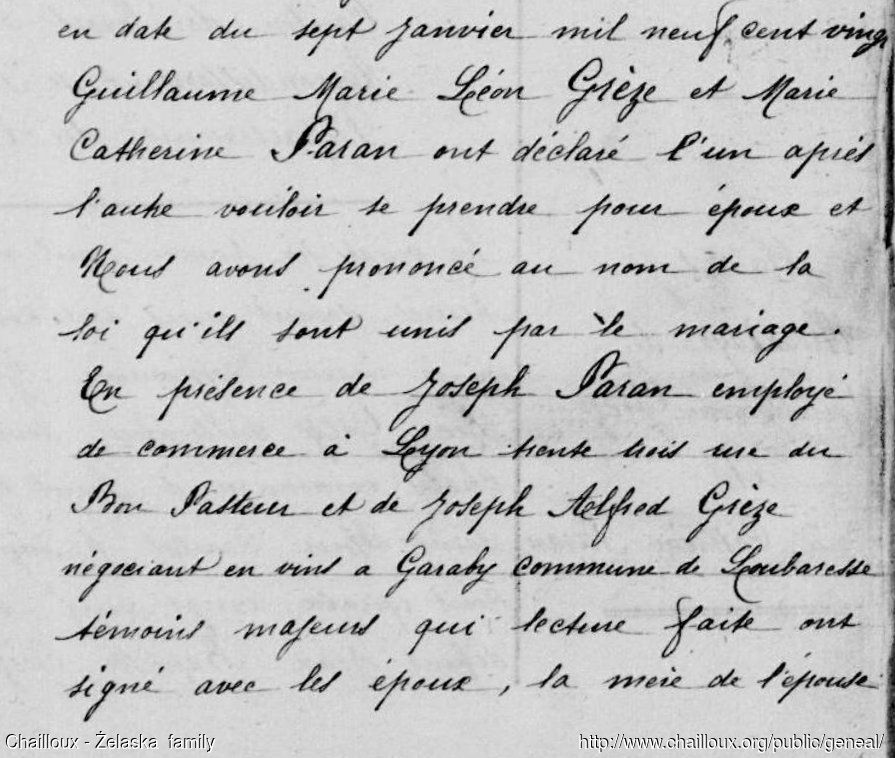 en date du sept Janvier mil neuf cent vingt
Guillaume Marie Léon Grèze et Marie
Catherine Paran ont déclaré l'un après
l'autre vouloir se prendre pour époux et
Nous avons prononcé au nom de la
loi qu'ils sont unis par le mariage.
En présence de Joseph Paran employé
de commerce à Lyon trente trois rue du
Bon Pasteur et de Joseph Aelfred Grèze
négociant en vins a Garaby commune de Loubaresse
témoins majeurs qui lecture faite ont
signé avec les époux, la mère de l'épouse
Chailloux - Żelaska family
http://www.chailloux.org/public/geneal/